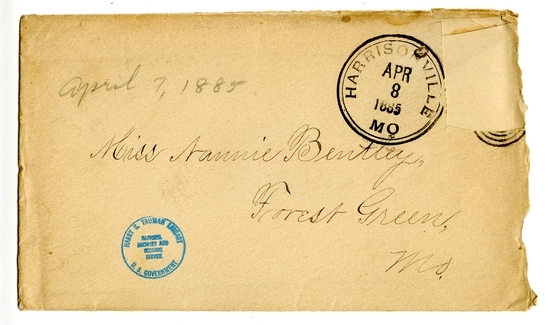 April 7, 1885
HARRISONVILLE
APR
8
1885
MO
Miss Nannie Bentley,
Forest Green,
Mo.
HARRY S. TRUMAN LIBRARY
NATIONAL
ARCHIVES AND
RECORDS
SERVICE
U. S. GOVERNMENT